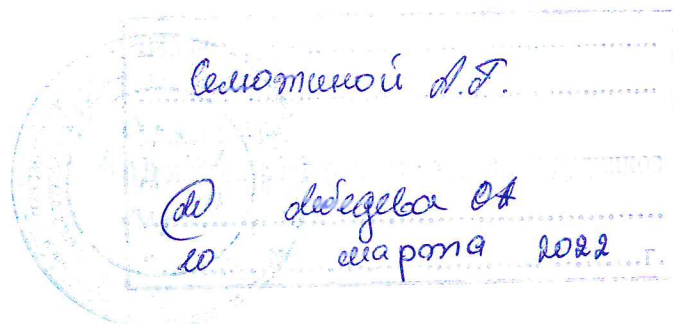 Семютиной А.Г.
Лебедева ОА
10 марта 2022